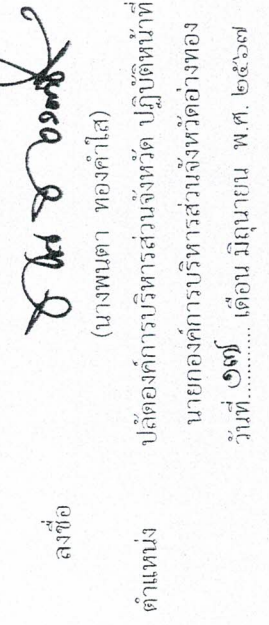 ลงชื่อ
(นางพนตา ทองคำใส)
ตำแหน่ง ปลัดองค์การบริหารส่วนจังหวัด ปฏิบัติหน้าที่
นายกองค์การบริหารส่วนจังหวัดอ่างทอง
วันที่ ๑๗ เดือน มิถุนายน พ.ศ. ๒๕๖๗